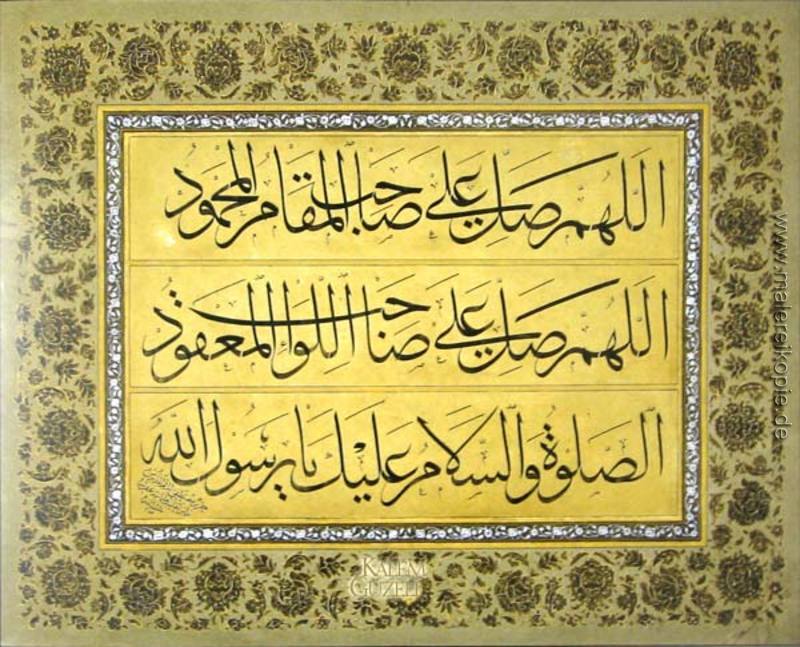 اللهم صل على صاحب المقام المحمود
اللهم صل على صاحب اللواء المعقود
الصلوة والسلام عليك يا رسول الله
KALEM
GÜZELİ
www.malereikopie.de